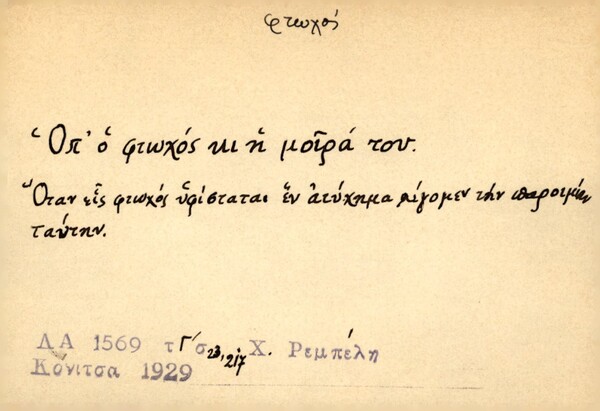 φτωχός
Ὁπ' ὁ φτωχός κι ἡ μοῖρά του.
Ὅταν εἷς φτωχός ὑφίσταται ἕν ἀτύχημα λέγομεν τήν παροιμίαν
ταύτην.
ΛΑ 1569 τ Γ' σ 23, 217 Χ. Ρεμπέλη
Κόνιτσα 1929